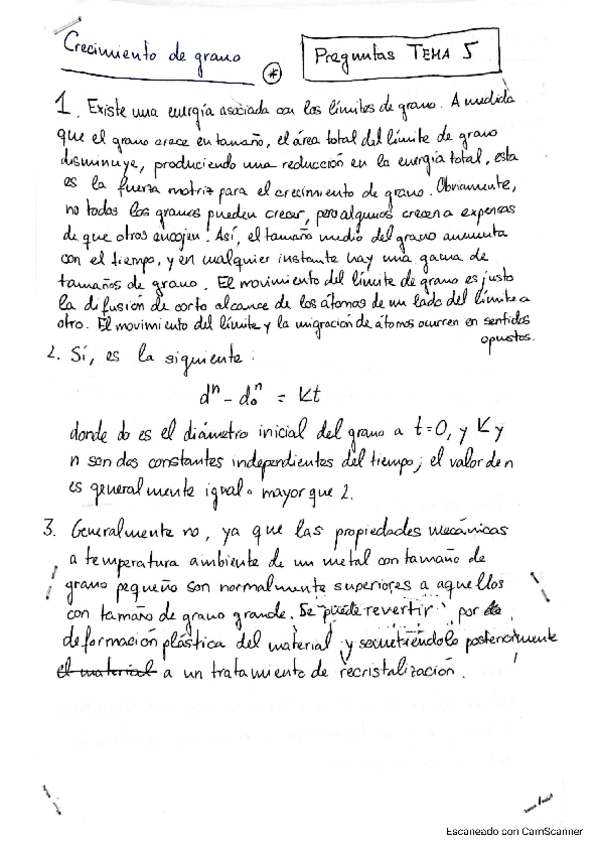 Crecimiento de grano
*
Preguntas TEMA 5
1. Existe una energía asociada con los límites de grano. A medida
que el grano crece en tamaño, el área total del límite de grano
disminuye, produciendo una reducción en la energía total, esta
es la fuerza motriz para el crecimiento de grano. Obviamente,
no todos los granos pueden crecer, pero algunos crecen a expensas
de que otros encojen. Así, el tamaño medio del grano aumenta
con el tiempo, y en cualquier instante hay una gama de
tamaños de grano. El movimiento del límite de grano es justo
la difusión de corto alcance de los átomos de un lado del límite a
otro. El movimiento del límite y la migración de átomos ocurren en sentidos
opuestos.
2. Sí, es la siguiente:
dⁿ - d₀ⁿ = Kt
donde do es el diámetro inicial del grano a t=0, y K y
n son dos constantes independientes del tiempo; el valor de n
es generalmente igual o mayor que 2.
3. Generalmente no, ya que las propiedades mecánicas
a temperatura ambiente de un metal con tamaño de
grano pequeño son normalmente superiores a aquellos
con tamaño de grano grande. Se puede revertir por
deformación plástica del material y sometiéndolo posteriormente
el material a un tratamiento de recristalización.
Escaneado con CamScanner